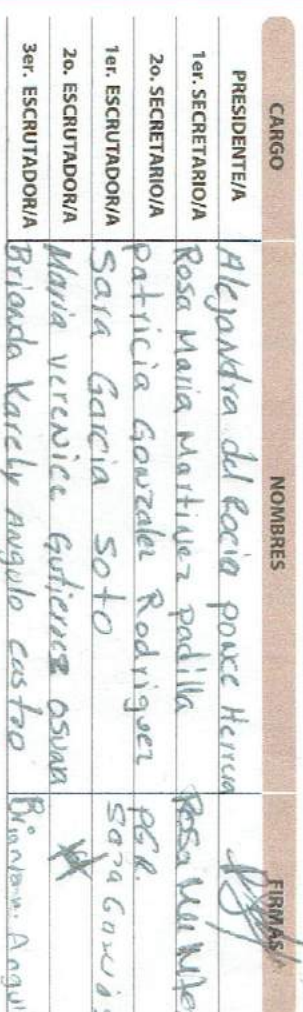 CARGO NOMBRES FIRMAS
PRESIDENTE/A Alejandra del Rocio ponce Herrera
1er. SECRETARIO/A Rosa Maria Martinez padilla Rosa
2o. SECRETARIO/A patricia Gonzalez Rodriguez PGR.
1er. ESCRUTADOR/A Sara Garcia Soto Sara Garcia
2o. ESCRUTADOR/A Maria verenice Gutierrez osuna
3er. ESCRUTADOR/A Brianda Karely Angulo castro